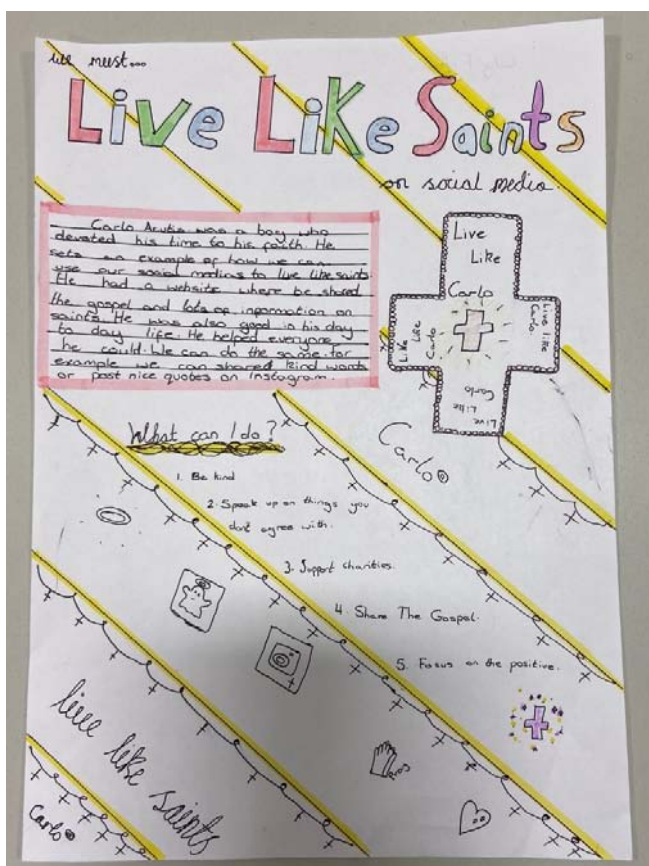 we must...
Live Like Saints
on social media.
Carlo Acutis was a boy who
devoted his time to his faith. He
sets an example of how we can
use our social medias to live like saints.
He had a website where be shared
the gospel and lots of information on
saints. He was also good in his day
to day life. He helped everyone
he could. We can do the same. for
example we can shared kind words
or post nice quotes on Instagram.
Live
Like
Carlo
Live Like Carlo
Live like
Carlo.
Live
Like
Carlo
Carlo
What can I do?
1. Be kind
2. Speak up on things you
don't agree with.
3. Support charities.
4. Share The Gospel.
5. Focus on the positive.
live like saints
Carlo